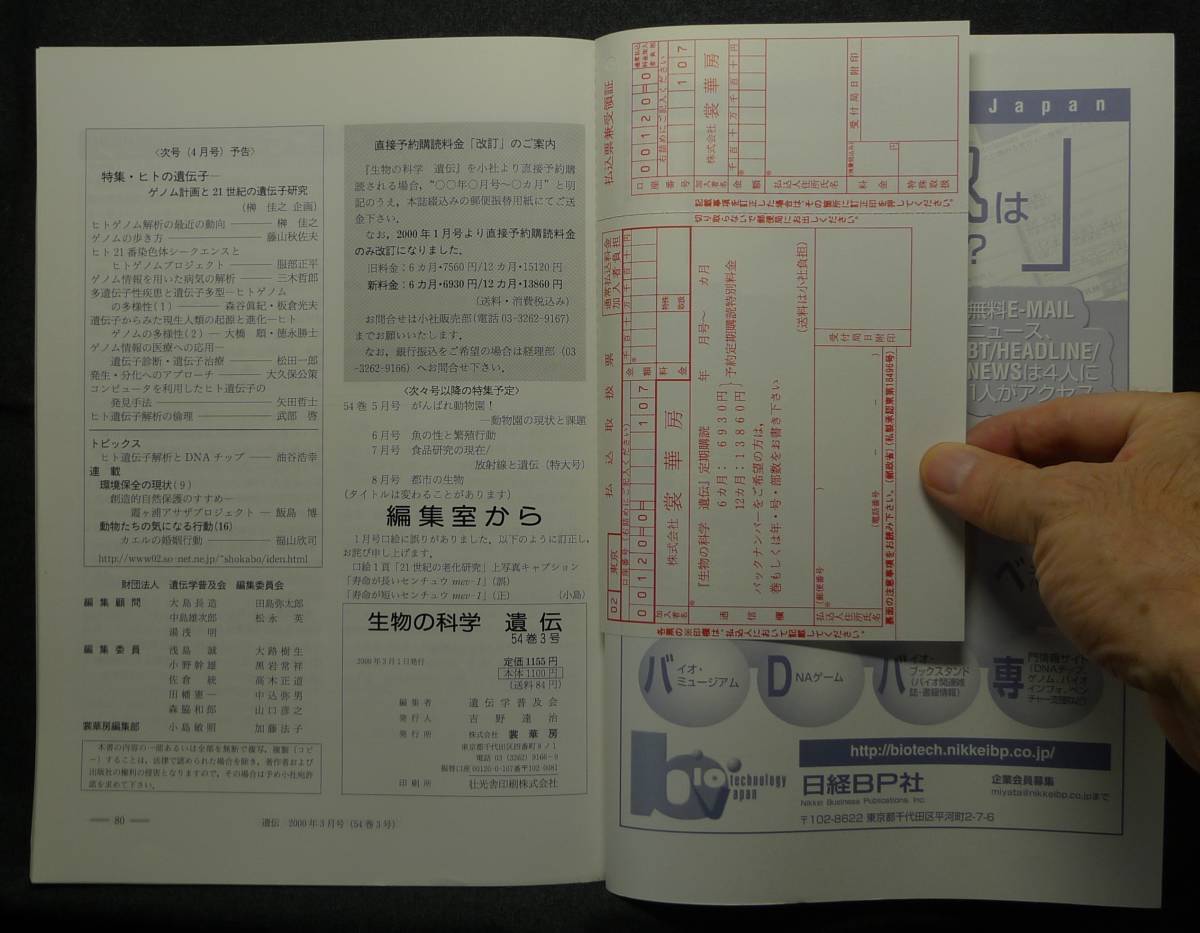 〈次号(4月号)予告〉
特集・ヒトの遺伝子―
ゲノム計画と21世紀の遺伝子研究
(榊 佳之 企画)
ヒトゲノム解析の最近の動向 ―― 榊 佳之
ゲノムの歩き方 ―― 藤山秋佐夫
ヒト21番染色体シークエンスと
ヒトゲノムプロジェクト ―― 服部正平
ゲノム情報を用いた病気の解析 ―― 三木哲郎
多遺伝子性疾患と遺伝子多型―ヒトゲノム
の多様性(1) ―― 森谷眞紀・板倉光夫
遺伝子からみた現生人類の起源と進化―ヒト
ゲノムの多様性(2) ― 大橋 順・徳永勝士
ゲノム情報の医療への応用―
遺伝子診断・遺伝子治療 ―― 松田一郎
発生・分化へのアプローチ ―― 大久保公策
コンピュータを利用したヒト遺伝子の
発見手法 ―― 矢田哲士
ヒト遺伝子解析の倫理 ―― 武部 啓
トピックス
ヒト遺伝子解析とDNAチップ ―― 油谷浩幸
連 載
環境保全の現状(9)
創造的自然保護のすすめ―
霞ヶ浦アサザプロジェクト ― 飯島 博
動物たちの気になる行動(16)
カエルの婚姻行動 ―― 福山欣司
http://www02.so-net.ne.jp/~shokabo/iden.html
財団法人 遺伝学普及会 編集委員会
編集顧問 大島長造 田島弥太郎
中島雄次郎 松永 英
湯浅 明
編集委員 浅島 誠 大路樹生
小野幹雄 黒岩常祥
佐倉 統 高木正道
田幡憲一 中込弥男
森脇和郎 山口彦之
裳華房編集部 小島敏照 加藤法子
本書の内容の一部あるいは全部を無断で複写,複製(コピ
ー)することは,法律で認められた場合を除き,著作者および
出版社の権利の侵害となりますので,その場合は予め小社宛許
諾を求めて下さい.
― 80 ―
遺伝 2000年3月号(54巻3号)
直接予約購読料金「改訂」のご案内
『生物の科学 遺伝』を小社より直接予約購
読される場合,“〇〇年〇月号〜〇カ月”と明
記のうえ,本誌綴込みの郵便振替用紙にてご送
金下さい.
なお,2000年1月号より直接予約購読料金
のみ改訂になりました.
旧料金:6カ月・7560円/12カ月・15120円
新料金:6カ月・6930円/12カ月・13860円
(送料・消費税込み)
お問合せは小社販売部(電話03-3262-9167)
までお願いいたします.
なお,銀行振込をご希望の場合は経理部(03
-3262-9166)へお問合せ下さい.
〈次々号以降の特集予定〉
54巻5月号 がんばれ動物園!
―動物園の現状と課題
6月号 魚の性と繁殖行動
7月号 食品研究の現在/
放射線と遺伝(特大号)
8月号 都市の生物
(タイトルは変わることがあります)
編集室から
1月号口絵に誤りがありました.以下のように訂正し,
お詫び申し上げます.
口絵1頁「21世紀の老化研究」上写真キャプション
「寿命が長いセンチュウmev-1」(誤)
「寿命が短いセンチュウmev-1」(正) (小島)
生物の科学 遺伝
54巻3号
2000年3月1日発行 定価1155円
本体1100円
(送料84円)
編集者 遺伝学普及会
発行人 吉野達治
発行所 株式会社 裳華房
東京都千代田区四番町8ノ1
電話 03(3262)9166〜9
振替口座00120-0-107番〒102-0081
印刷所 壮光舎印刷株式会社
払込票兼受領証
通常払込料金加入者負担
口座番号
00120=0
右詰めにご記入ください
107
加入者名
株式会社 裳華房
金額
千百十万千百十円
払込人住所氏名
料金
特殊取扱
受付局日附印
記載事項を訂正した場合は、その箇所に訂正印を押してください。
切り取らないで郵便局にお出しください。
払込取扱票
通常払込料金加入者負担
02 東京
口座番号(右詰めにご記入ください)
00120=0
107
金額
料金
特殊取扱
加入者名
株式会社 裳華房
通信欄
『生物の科学 遺伝』定期購読 年 月号〜 カ月
6カ月:6930円
12カ月:13860円
予約定期購読特別料金
(送料は小社負担)
バックナンバーをご希望の方は,
巻もしくは年・号・部数をお書き下さい
払込人住所氏名
(郵便番号 )
(電話番号 - - )
受付局日附印
裏面の注意事項をお読み下さい。(郵政省)(私製承認東第18496号)
各票の※印欄は、払込人において記載してください。
Japan
は
?
」
無料E-MAIL
ニュース、
BT/HEADLINE/
NEWSは4人に
1人がアクセス
バイオ・
ミュージアム
DNAゲーム
バイオ・
ブックスタンド
(バイオ関連雑
誌・書籍情報)
専門情報サイト
(DNAチップ、
ゲノム、バイオ
インフォ、ベン
チャー流団など)
http://biotech.nikkeibp.co.jp/
biotechnology
Japan
日経BP社
Nikkei Business Publications, Inc.
企業会員募集
miyata@nikkeibp.co.jpまで
〒102-8622 東京都千代田区平河町2-7-6